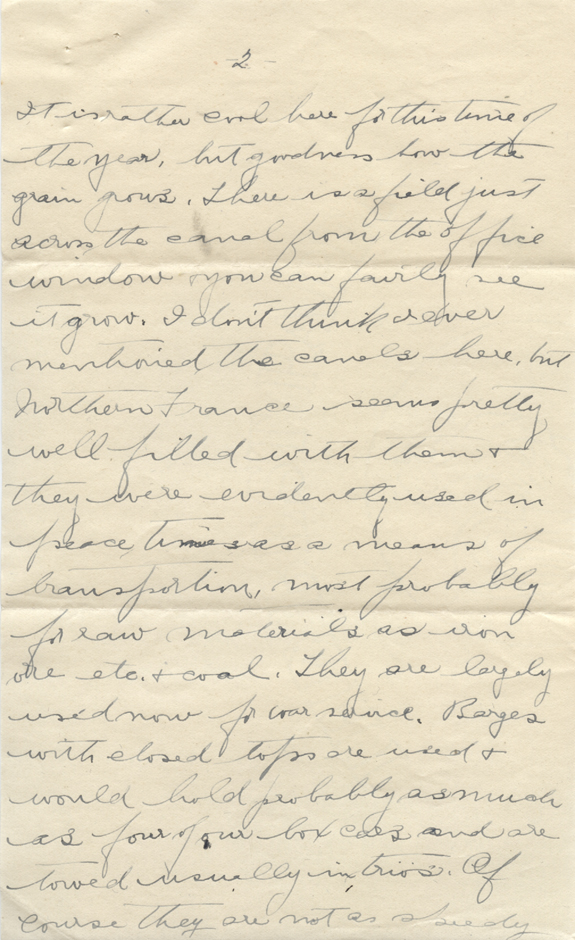 -2-
It is rather cool here for this time of
the year, but goodness how the
grain grows. There is a field just
across the canal from the office
window & you can fairly see
it grow. I don't think I ever
mentioned the canals here, but
Northern France seems pretty
well filled with them &
they were evidently used in
peace times as a means of
transportion, most probably
for raw materials as iron
ore etc. & coal. They are largely
used now for war service. Barges
with closed tops are used &
would hold probably as much
as four of our box cars and are
towed usually in trios. Of
course they are not as speedy